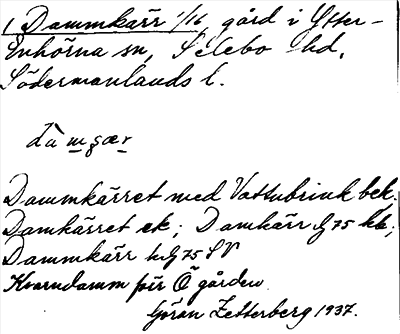 1 Dammkärr 1/16, gård i Ytter-
Enhörna sn, Selebo hd,
Södermanlands l.
dàmçær
Dammkärret med Vattubrink bek.
Damkärret ek; Damkärr G75 kb;
Dammkärr hG75 SV
Kvarndamm för Ö gården
Göran Zetterberg 1937.